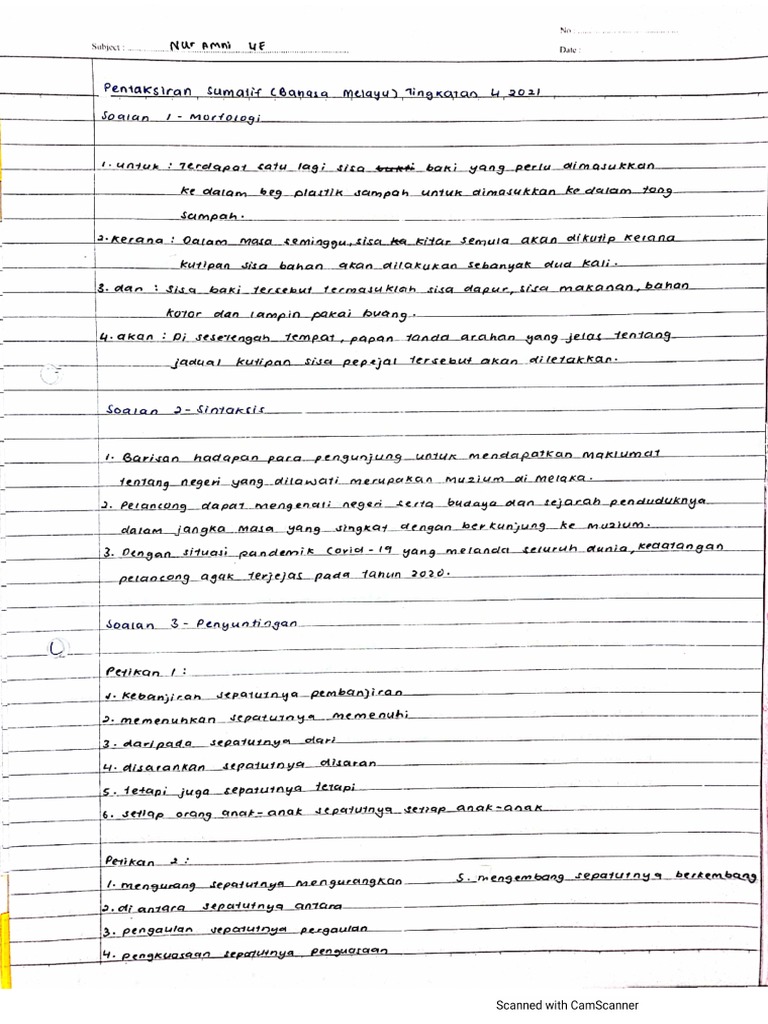 No
Subject : Nur Amni 4E
Date :
Pentaksiran Sumatif (Bahasa Melayu) Tingkatan 4 2021
Soalan 1 - Morfologi
1. untuk : Terdapat satu lagi sisa baki yang perlu dimasukkan
ke dalam beg plastik sampah untuk dimasukkan ke dalam tong
sampah.
2. kerana : Dalam masa seminggu, sisa kitar semula akan dikutip kerana
kutipan sisa bahan akan dilakukan sebanyak dua kali.
3. dan : Sisa baki tersebut termasuklah sisa dapur, sisa makanan, bahan
kotor dan lampin pakai buang.
4. akan : Di sesetengah tempat, papan tanda arahan yang jelas tentang
jadual kutipan sisa pepejal tersebut akan diletakkan.
Soalan 2 - Sintaksis
1. Barisan hadapan para pengunjung untuk mendapatkan maklumat
tentang negeri yang dilawati merupakan muzium di Melaka.
2. Pelancong dapat mengenali negeri serta budaya dan sejarah penduduknya
dalam jangka masa yang singkat dengan berkunjung ke muzium.
3. Dengan situasi pandemik Covid-19 yang melanda seluruh dunia, kedatangan
pelancong agak terjejas pada tahun 2020.
Soalan 3 - Penyuntingan
Petikan 1 :
1. Kebanjiran sepatutnya pembanjiran
2. memenuhkan sepatutnya memenuhi
3. daripada sepatutnya dari
4. disarankan sepatutnya disaran
5. tetapi juga sepatutnya tetapi
6. setiap orang anak-anak sepatutnya setiap anak-anak
Petikan 2 :
1. mengurang sepatutnya mengurangkan 5. mengembang sepatutnya berkembang
2. di antara sepatutnya antara
3. pengaulan sepatutnya pergaulan
4. pengkuasaan sepatutnya penguasaan
Scanned with CamScanner